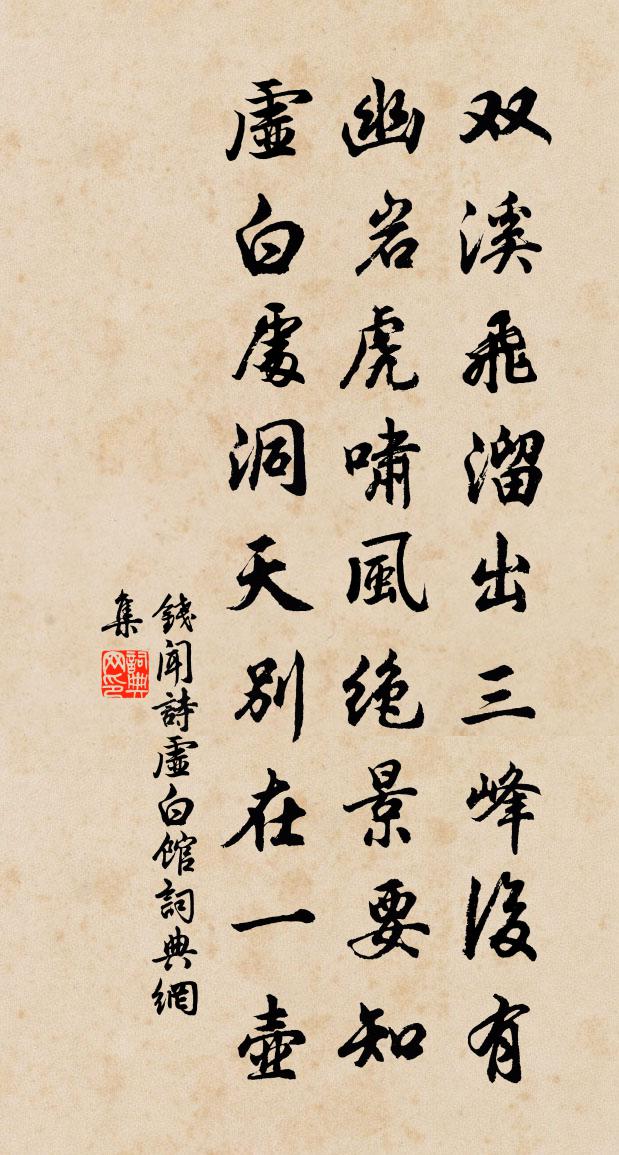 双溪飛溜出三峰後有
幽岩虎嘯風絶景要知
虛白處洞天別在一壺
錢聞詩虛白館詞典網
集
詞典网印